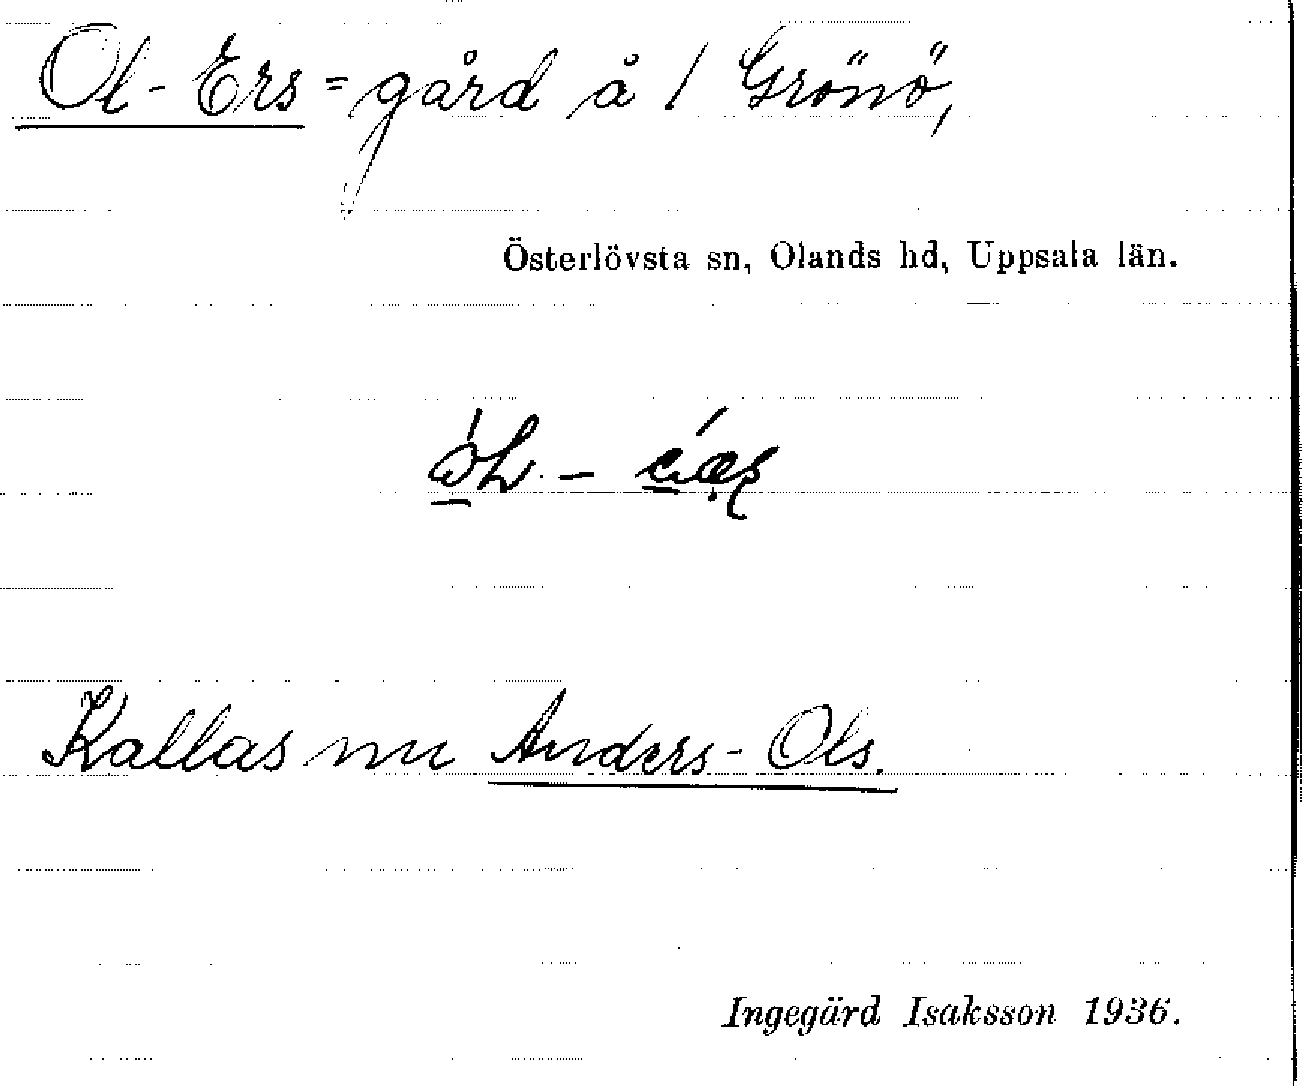 Ol-Ers = gård å 1 Grönö,
Österlövsta sn, Olands hd, Uppsala län.
Kallas nu Anders-Ols.
Ingegärd Isaksson 1936.